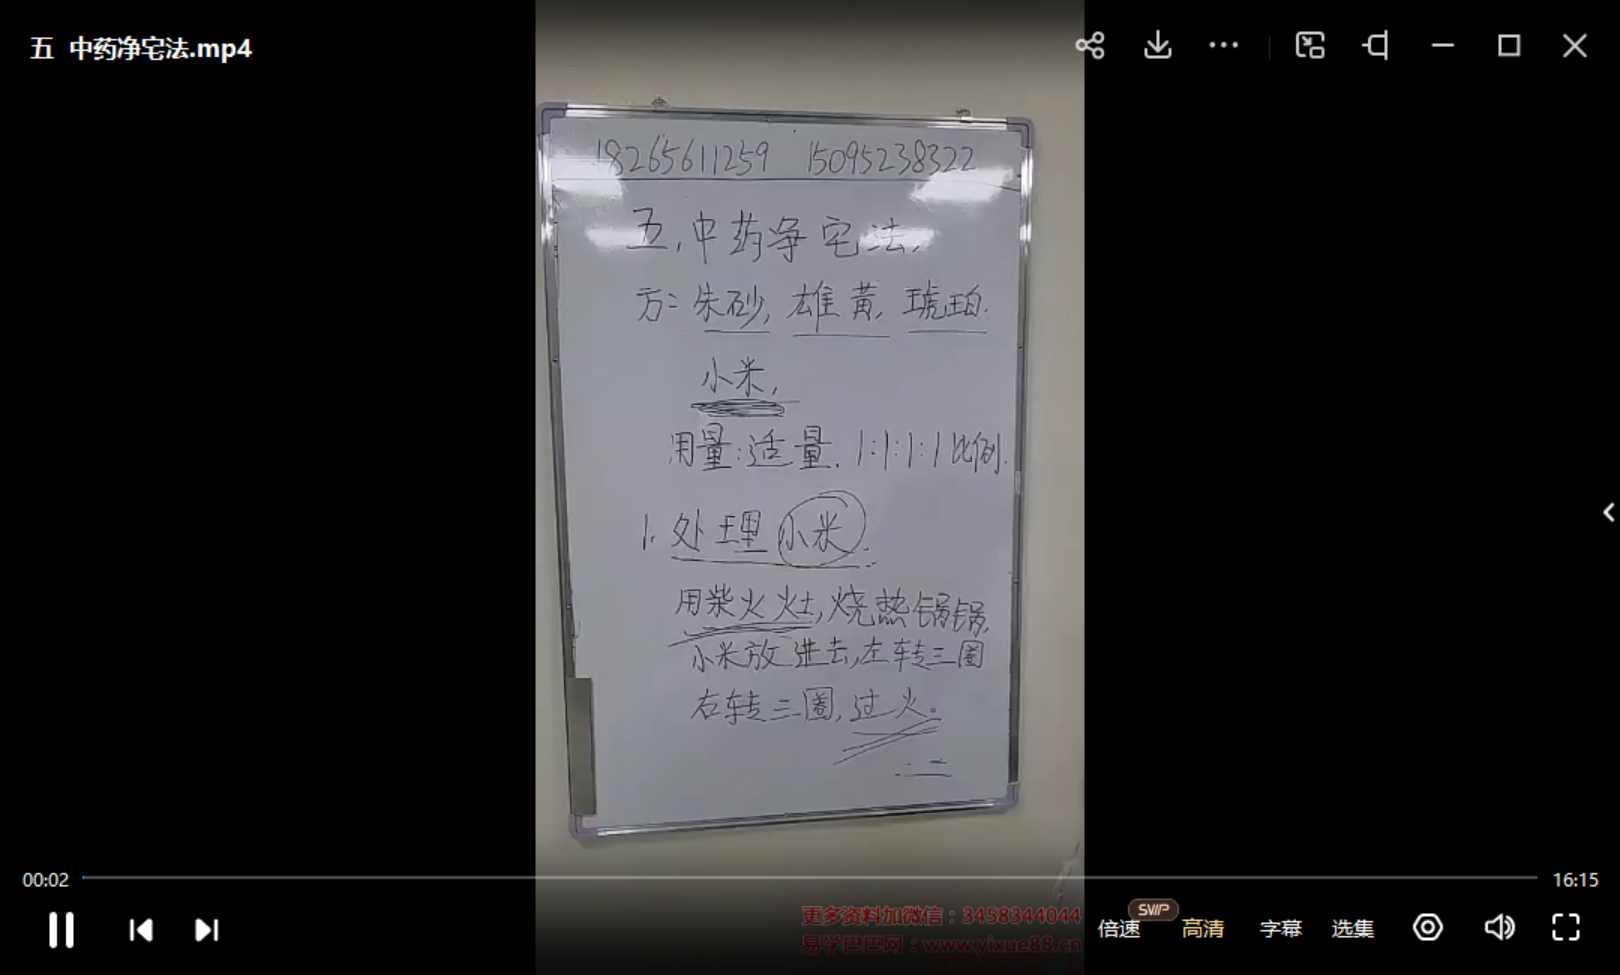 五 中药净宅法.mp4
18265611259 15095238322
五.中药净宅法.
方:朱砂,雄黄,琥珀.
小米,
用量:适量.1:1:1:1比例.
1.处理小米.
用柴火灶,烧热锅锅,
小米放进去,左转三圈
右转三圈,过火。
00:02
16:15
更多资料加微信:3458344044
易学巴巴网:www.yixue88.cn
倍速
SVIP
高清
字幕
选集